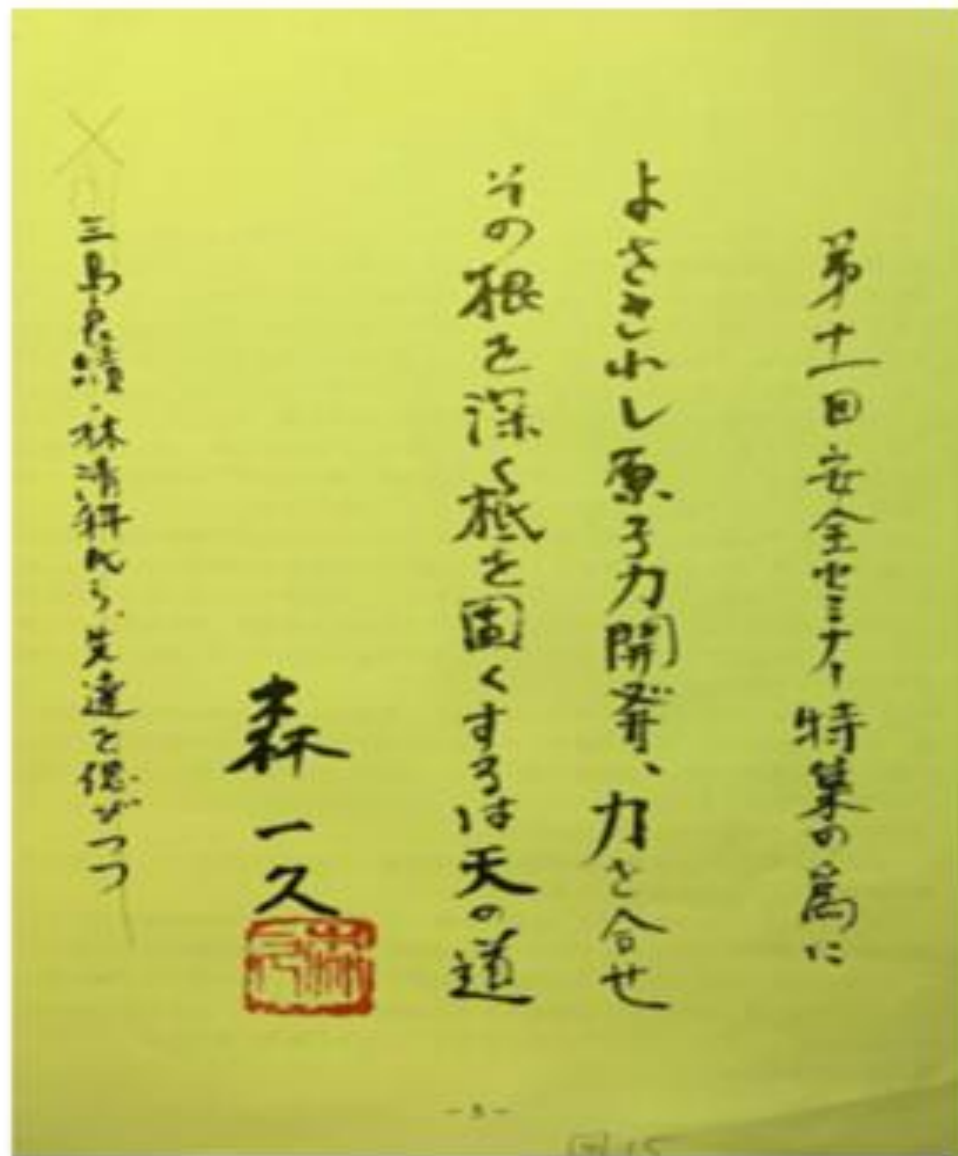 第十一回安全セミナー特集の為に
よさされし原子力開発、力を合せ
その根を深く柢を固くするは天の道
森一久
三島良績・林清解氏ら、先達を偲びつつ
- 5 -
15